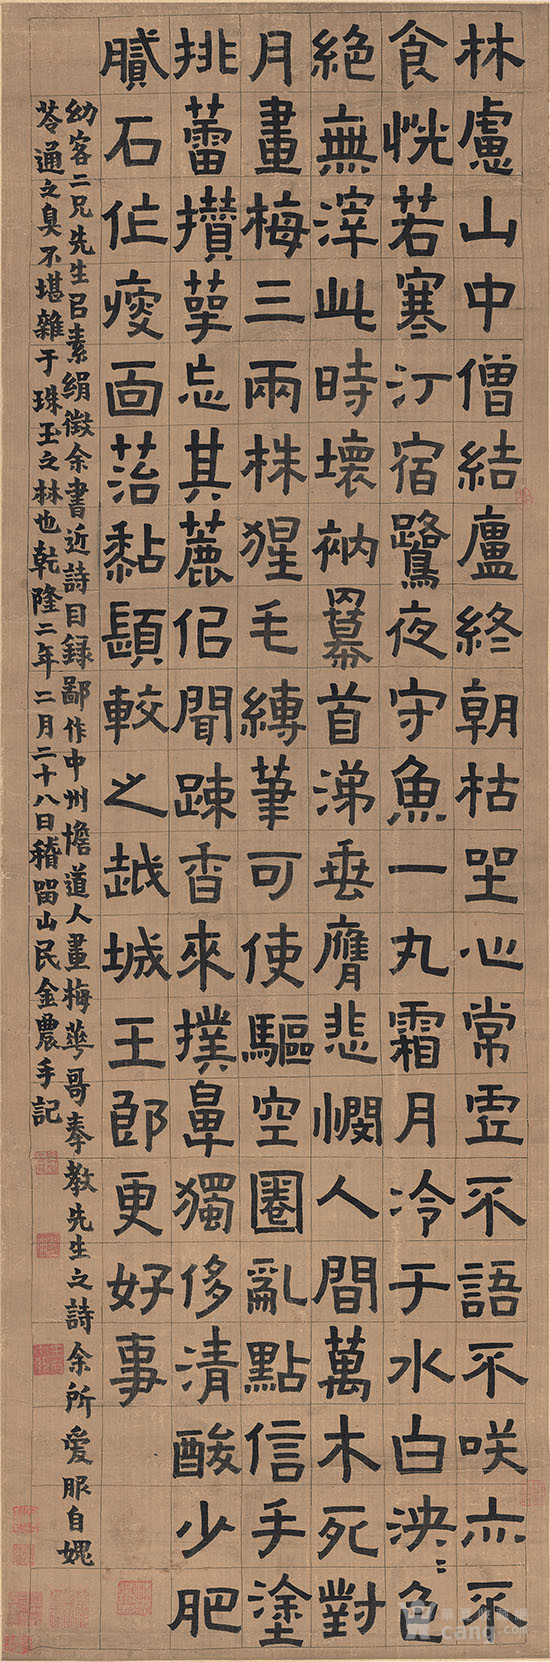 林慮山中僧結廬終朝枯坐心常虛不語不咲亦不
食恍若寒汀宿鷺夜守魚一丸霜月冷于水白泱〻色
絕無滓此時壞衲冪首涕垂膺悲憫人間萬木死對
月畫梅三兩株猩毛縳筆可使驅空圈亂點信手塗
挑蕾攢萼忘其麤侣聞踈香來撲鼻獨侈清酸少肥
膩石作瘦面苔黏較之越城王郎更好事
幼客二兄先生㠯素絹徵余書近詩目錄鄙作中州憺道人畫梅華哥奉教先生之詩余所愛服自媿
苓通之臭不堪雜于珠玉之林也乾隆二年二月二十八日稽留山民金農手記
cang.com